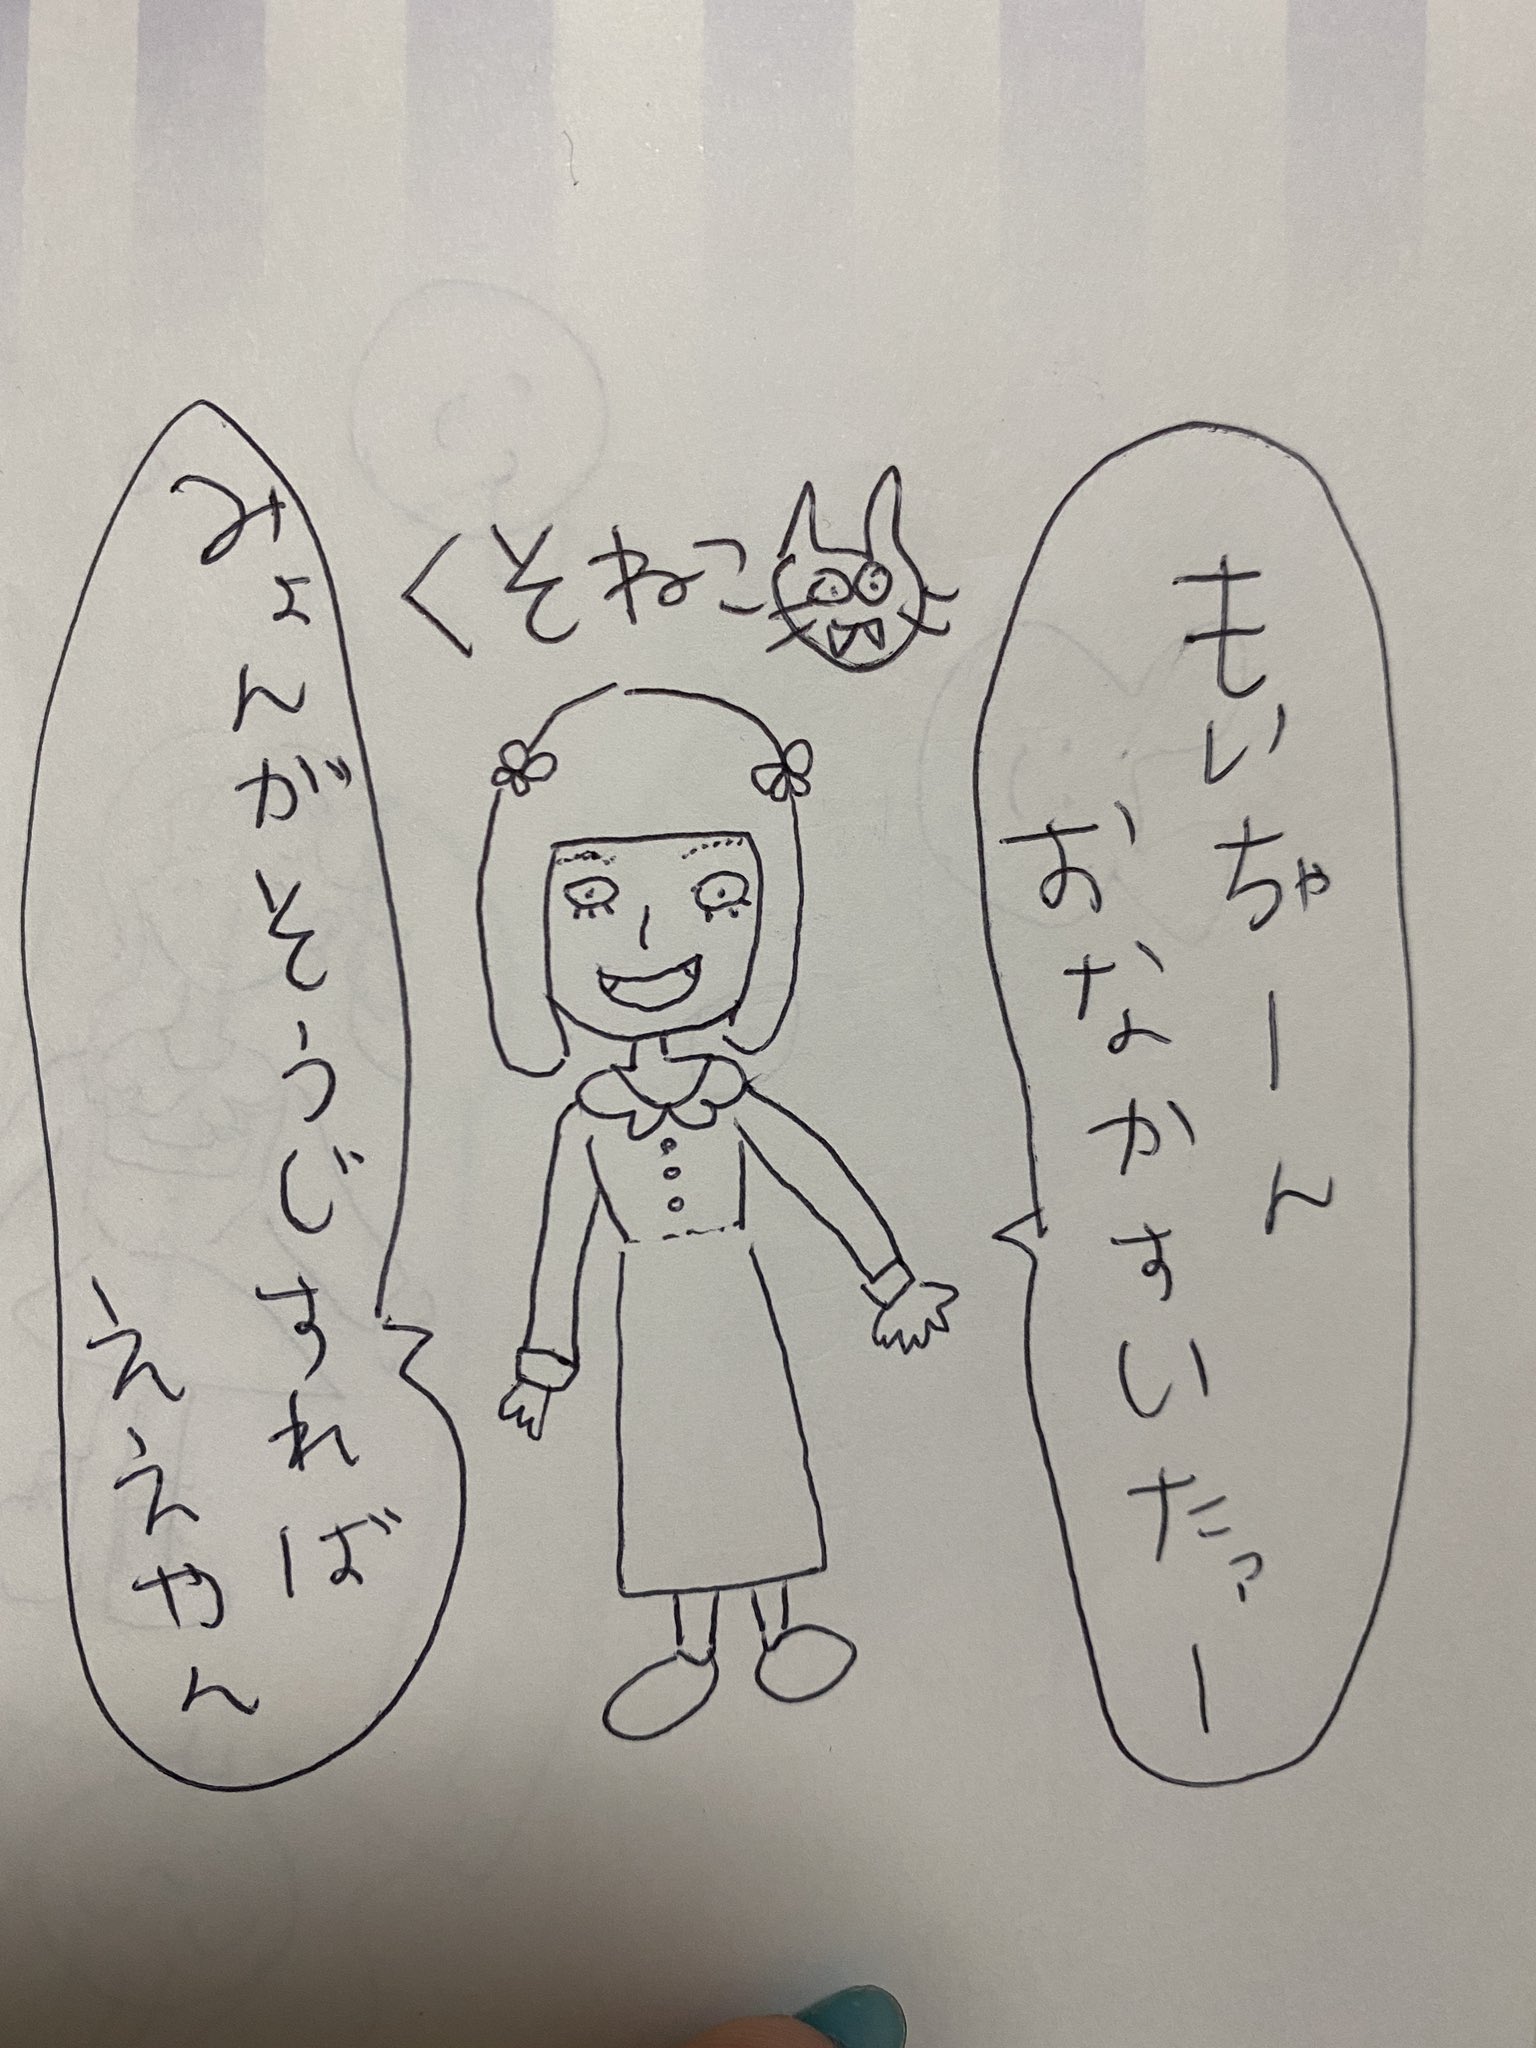 もいちゃーん
おなかすいたっー
くそねこ
みょんがそうじすれば
ええやん